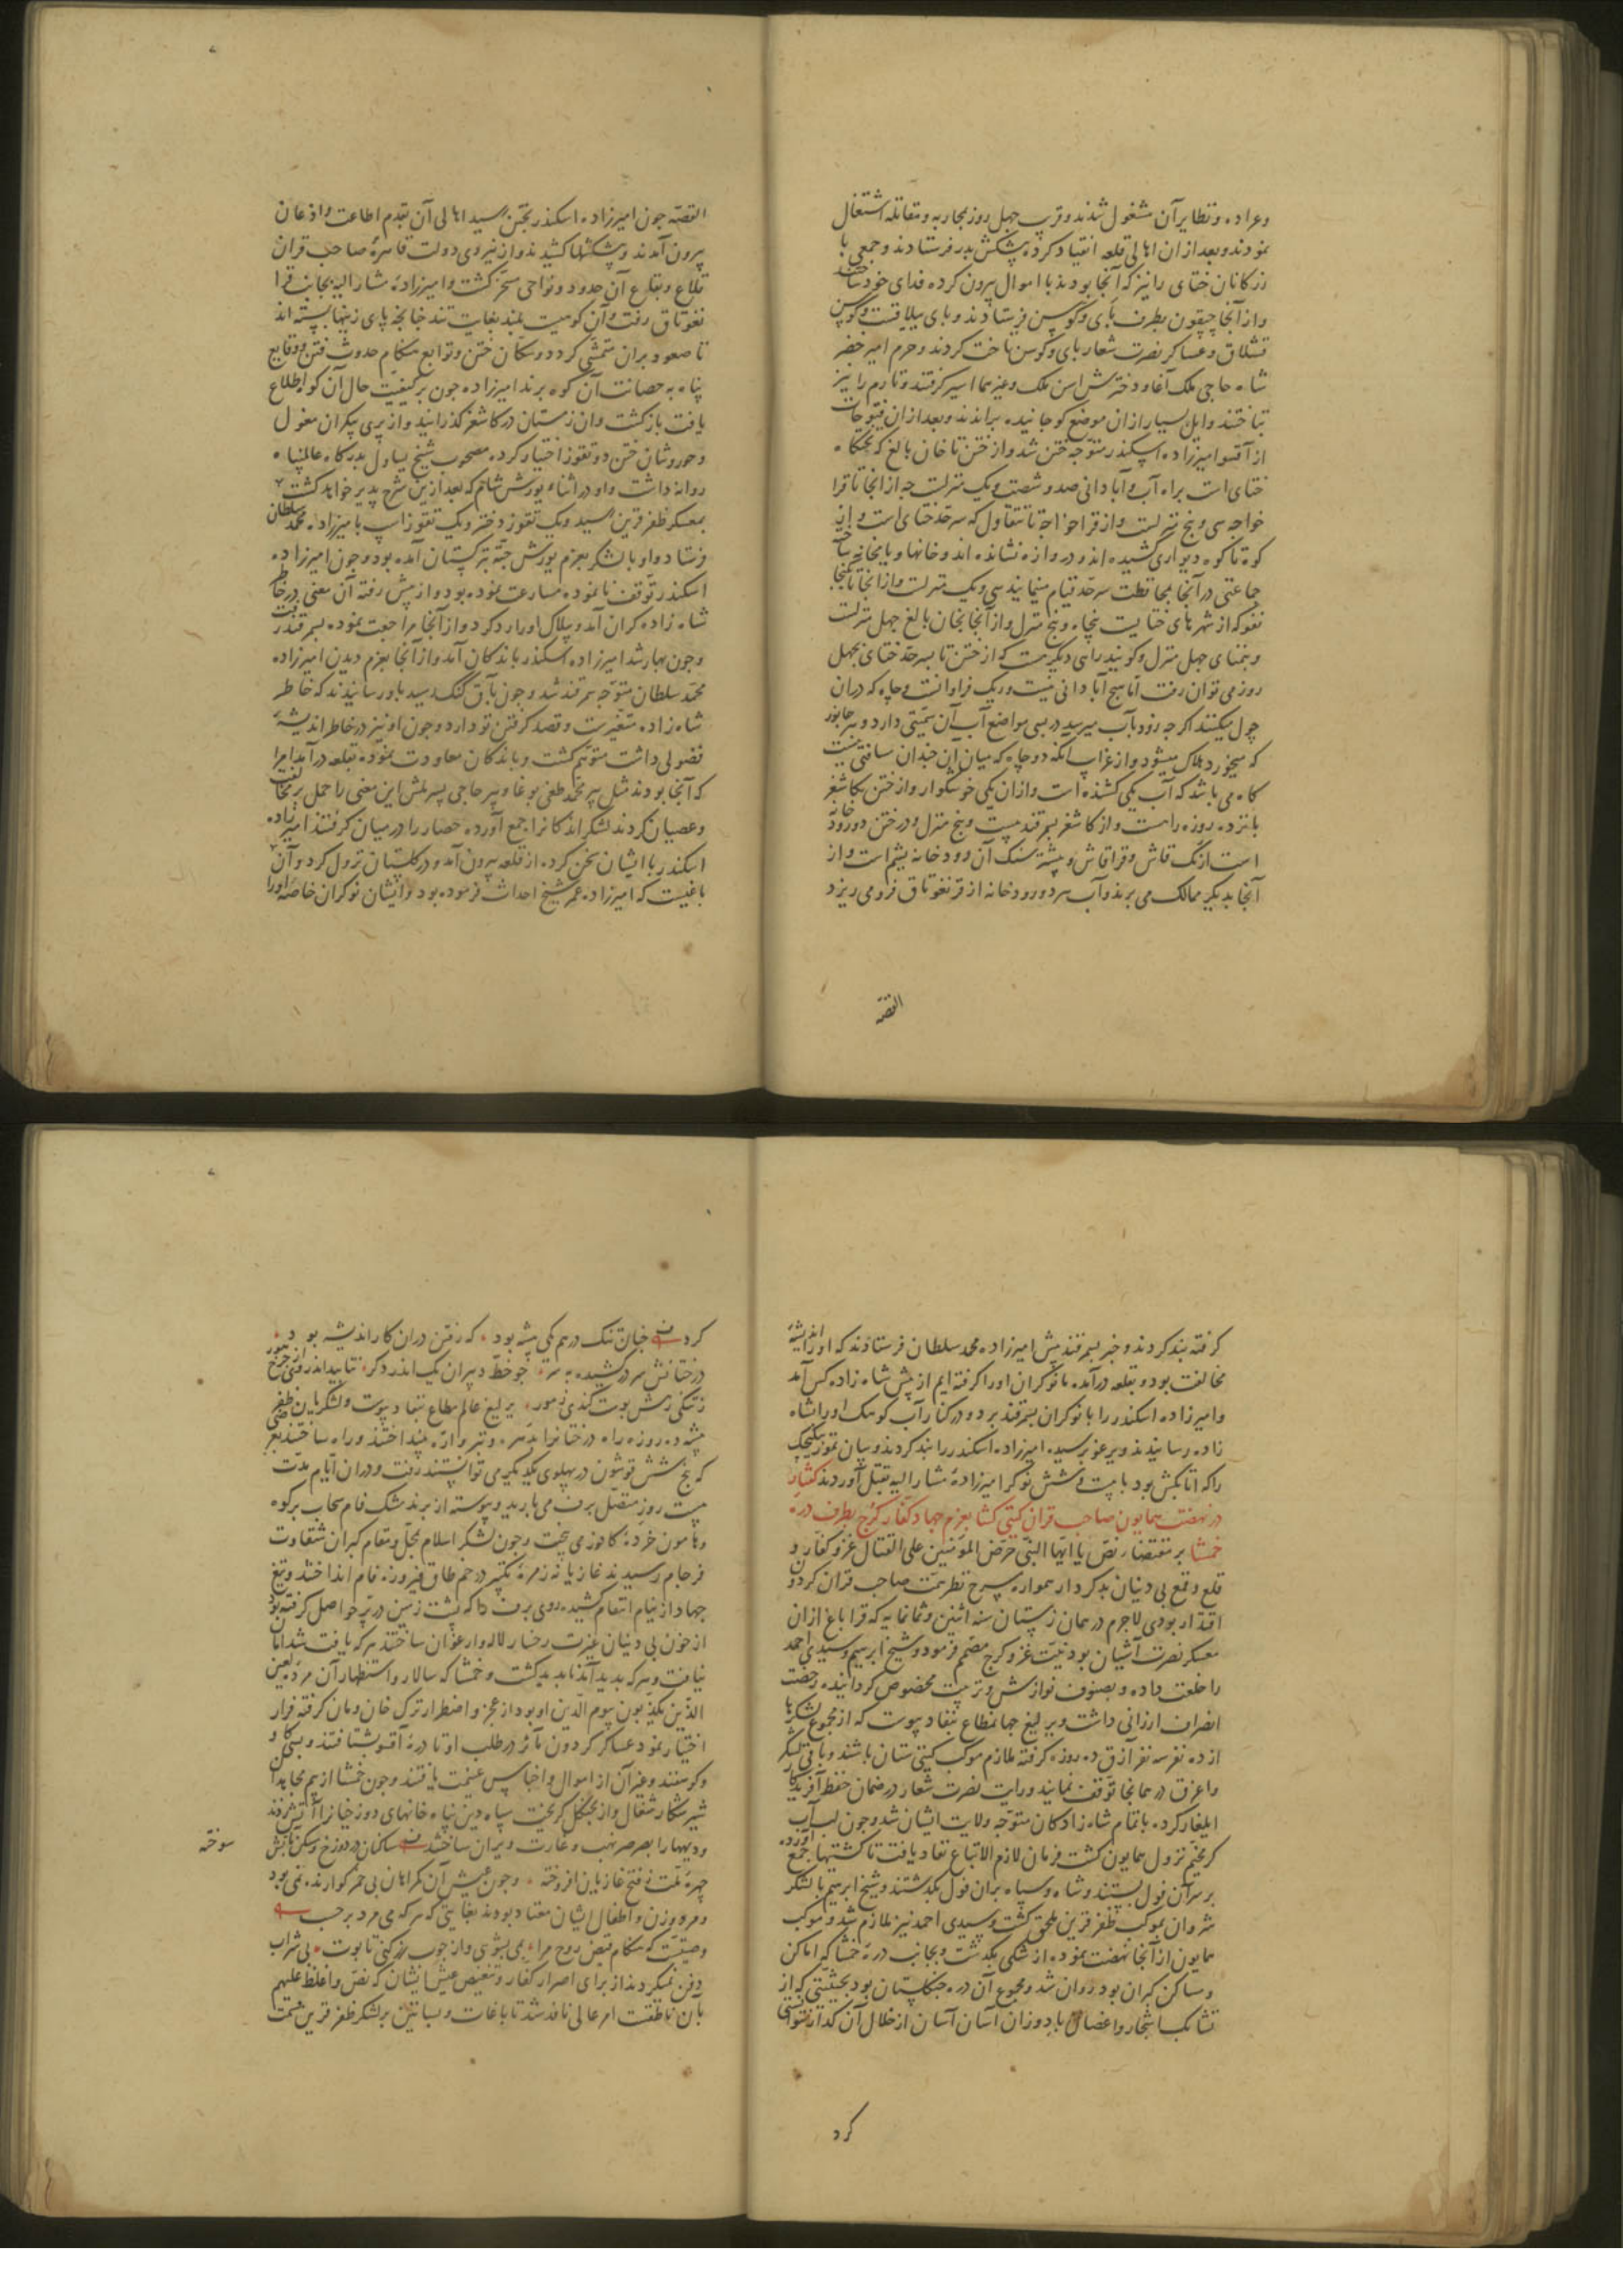 وعراده ونظایر آن مشغول شدند وقرب جهل روز بمحاربه ومقاتله اشتغال
نمودند وبعد از ان اهالی قلعه انقیاد کرده پیشکش بدر فرستادند وجمعی با
زرکانان ختای را نیز که آنجا بودند با اموال بیرون کرده فدای خود ساختند
واز آنجا چپقون بطرف بای وکوسن فرستادند وبای ییلاقست وکوسن
قشلاق وعساکر نصرت شعار بای وکوسن تاخت کردند وحرم امیر خضر
شاه حاجی ملک آغا ودخترش ایسن ملک وغیرهما اسیر کرفتند وتارم را نیز
تاختند وایل بسیار از ان موضع کوجانیده براندند وبعد از ان فتوحات
از آقسو امیرزاده اسکندر متوجه ختن شد واز ختن تا خان بالغ که تختکاه
ختای است براه آب وآبادانی صد وشصت ویک منزلست جه از انجا تا قرا
خواجه سی وپنج منزلست واز قراخواجه تا تتقاول که سرحد ختای است واز
کوه تا کوه دیواری کشیده اند ودروازه نشانده اند وخانها ویامخانه ساخته
جماعتی در آنجا بمحافظت سرحد قیام مینمایند سی ویک منزلست واز انجا تا کنجا
نفو که از شهرهای ختایست پنجاه وپنج منزل واز آنجا بخان بالغ جهل منزلست
وبتمنای جهل منزل وکویند راهی دیکر هست که از ختن تا بسرحد ختای بجهل
روز می توان رفت اما هیچ آبادانی نیست وریک فراوانست وچاه که دران
چول میکنند اکر جه زود بآب میرسد در بسی مواضع آب آن سمیتی دارد وهر جانور
که میخورد هلاک میشود واز غرایب آنکه دو چاه که میان این چندان مسافتی نیست
کاه می باشد که آب یکی کشنده است واز ان یکی خوشکوار واز ختن تا کاشغر
پانزده روزه راهست واز کاشغر بسمرقند بیست وپنج منزل ودر ختن دو رودخانه
است ازنک قاش وقرا قاش وبیشتر سنک آن رودخانه یشم است واز
آنجا بدیکر ممالک می برند وآب هر دو رودخانه از قرنغوتاق فرو می ریزد
القصه
القصه جون امیرزاده اسکندر بختن رسید اهالی آن بقدم اطاعت واذعان
بیرون آمدند وپیشکشها کشیدند واز نیروی دولت قاهرهٔ صاحب قران
قلاع وبقاع آن حدود ونواحی مسخر کشت وامیرزادهٔ مشار الیه بجانب قرا
نغوتاق رفت وآن کوهیست بلند بغایت تند جنانجه پای زینها بسته اند
تا صعود بران متمشی کردد وسکان ختن وتوابع هنکام حدوث فتن ووقایع
پناه به حصانت آن کوه برند امیرزاده جون بر کیفیت حال آن کوه اطلاع
یافت باز کشت وان زمستان در کاشغر کذرانید واز پری پیکران مغول
وحوروشان ختن دو تقوز اختیار کرده مصحوب شیخ یساول بدرکاه عالمپناه
روانه داشت واو در اثناء یورش شام که بعد ازین شرح پذیر خواهد کشت
بمعسکر ظفر قرین رسید ویک تقوز دختر ویک تقوز اسب بامیرزاده محمد سلطان
فرستاد واو با لشکر بعزم یورش جته بترکستان آمده بود وجون امیرزاده
اسکندر توقف نانموده مسارعت نموده بود واز پیش رفته آن معنی در خاطر
شاه زاده کران آمد وبیلاک اورا رد کرد واز آنجا مراجعت نموده بسمرقند رفت
وجون بهار شد امیرزاده اسکندر باندکان آمد واز آنجا بعزم دیدن امیرزاده
محمد سلطان متوجه سمرقند شد وجون بآق کتک رسید باو رسانیدند که خاطر
شاه زاده متغیر است وقصد کرفتن تو دارد وجون او نیز در خاطر اندیشهٔ
فضولی داشت متوهم کشت وباندکان معاودت نموده بقلعه درآمد امرا
که آنجا بودند مثل پیر محمد طغی بوغا وپیر حاجی پسر ملش این معنی را حمل بر مخالفت
وعصیان کردند لشکر اندکانرا جمع آورده حصار را در میان کرفتند امیرزاده
اسکندر با ایشان سخن کرده از قلعه بیرون آمد ودر کلستان نزول کرد وآن
باغیست که امیرزاده عمر شیخ احداث فرموده بود وایشان نوکران خاصه اورا
کرفته بند کردند وخبر بسمرقند پیش امیرزاده محمد سلطان فرستادند که اورا اندیشهٔ
مخالفت بود وبقلعه درآمده ما نوکران اورا کرفته ایم از پیش شاه زاده کس آمد
وامیرزاده اسکندر را با نوکران بسمرقند برد ودر کنار آب کوهک اورا بشاه
زاده رسانیدند ویرغو پرسیده امیرزاده اسکندر را بند کردند وبیان تمور بیکیچک
راکه اتابکش بود با بیست وشش نوکر امیرزادهٔ مشار الیه بقتل آوردند کفتار
در نهضت همایون صاحب قران کیتی کشا بعزم جهاد کفار کرج بطرف درهٔ
خمشا بر مقتضاء نص یا ایها النبی حرض المؤمنین علی القتال غزو کفار و
قلع وقمع بی دینان بدکردار همواره مسرح نظر همت صاحب قران کردون
اقتدار بودی لاجرم در همان زمستان سنه اثنین وثمانمایه که قراباغ ازان
معسکر نصرت آشیان بود نیت غزو کرج مصمم فرمود وشیخ ابرهیم وسیدی احمد
را خلعت داده وبصنوف نوازش وتربیت مخصوص کردانیده رخصت
انصراف ارزانی داشت ویرلیغ جهانمطاع بنفاذ پیوست که از مجموع لشکرها
از ده نفر سه نفر آزق ده روزه کرفته ملازم موکب کیتی ستان باشند وباقی لشکر
واغرق در همانجا توقف نمایند ورایت نصرت شعار در ضمان حفظ آفریدکار
ایلغار کرده با تمام شاه زادکان متوجه ولایت ایشان شد وجون لب آب
کر مخیم نزول همایون کشت فرمان لازم الاتباع نفاد یافت تا کشتیها جمع آورده
بر سر آن قول بستند وشاه وسپاه بران قول بکذشتند وشیخ ابرهیم با لشکر
شروان بموکب ظفر قرین ملحق کشت وسیدی احمد نیز ملازم شد وموکب
همایون از آنجا نهضت نموده از شکی بکذشت وبجانب درهٔ خمشا که اماکن
ومساکن کبران بود روان شد ومجموع آن دره جنکلستان بود بحیثیتی که از
تشابک اشجار واغصان باد وزان آسان آسان از خلال آن کذار نتوانستی
کرد
کرد جنان تنک درهم یکی بیشه بود که رفتن دران کار اندیشه بود
درختانش سر درکشیده به سر جو خط دبیران یک اندر دکر نتابید اندروی ز جرخ هور
زتنکی رهش پوست کندی زمور یرلیغ عالم مطاع بنفاد پیوست ولشکریان ظفر
بیشه ده روزه راه درختانرا بتبر واره بینداختند وراه ساختند بعرضی
که پنج شش قوشون در پهلوی یکدیکر می توانستند رفت ودران ایام مدت
بیست روز متصل برف می بارید وپیوسته از پرند مشک فام سحاب بر کوه
وهامون خردهٔ کافور می بیخت وجون لشکر اسلام بمحل ومقام کبران شقاوت
فرجام رسیدند غازیانه زمزمهٔ تکبیر در خم طاق فیروزه فام انداختند وتیغ
جهاد از نیام انتقام کشیده روی برف را که پشت زمین در پر حواصل کرفته بود
از خون بی دینان غیرت رخسار لاله وارغوان ساختند هر که یافت شد اما
نیافت وهر که پدید آمد ناپدید کشت وخمشا که سالار واستظهار آن مردهٔ لعین
الذین یکذبون بیوم الدین او بود از عجز واضطرار ترک خان ومان کرفته فرار
اختیار نمود عساکر کردون مآثر در طلب او تا درهٔ آقسو بشتافتند وبسی کاو
وکوسفند وغیر آن از اموال واجناس غنیمت یافتند وجون خمشا از بیم مجاهدان
شیر شکار شغال وار بجنکل کریخت سپاه دین پناه خانهای دوزخیانرا آتش زدند
ودیهها را بصرصر نهب وغارت ویران ساختند ساکنان در دوزخ ومسکن بآتش
سوخته
چهرهٔ ملت ز فتح غازیان افروخته وجون عیش آن کمراهان بی خمر کوارنده نمی بود
ومرد وزن واطفال ایشان معتاد بودند بغایتی که هر که می مرد بر حسب
وصیت که هنکام قبض روح مرا بمی بشوی واز جوب رز کنی تابوت بی شراب
دفن نمیکردند از برای اصرار کفار وتنغیص عیش ایشان که نص واغلظ علیهم
بآن ناطقست امر عالی نافد شد تا باغات وبساتین بر لشکر ظفر قرین قسمت